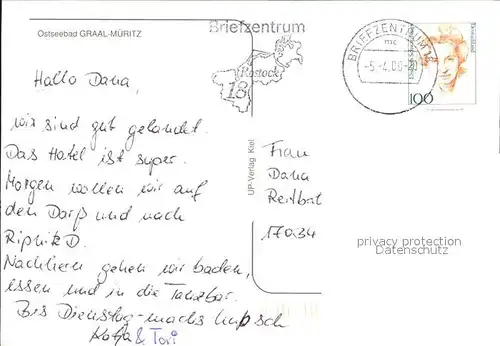 Ostseebad GRAAL-MÜRITZ
Briefzentrum
Rostock
18
BRIEFZENTRUM 18
mc
-5.-4.00-20
100
Hallo Dana,
wir sind gut gelandet.
Das Hotel ist super.
Morgen wollen wir auf
den Darß und nach
D.
Nachher gehen wir baden,
essen und in die Tanzbar.
Bis Dienstag - machs hübsch
Katja & Tori
UP-Verlag Kiel
Frau
Dana
17034
privacy protection
Datenschutz